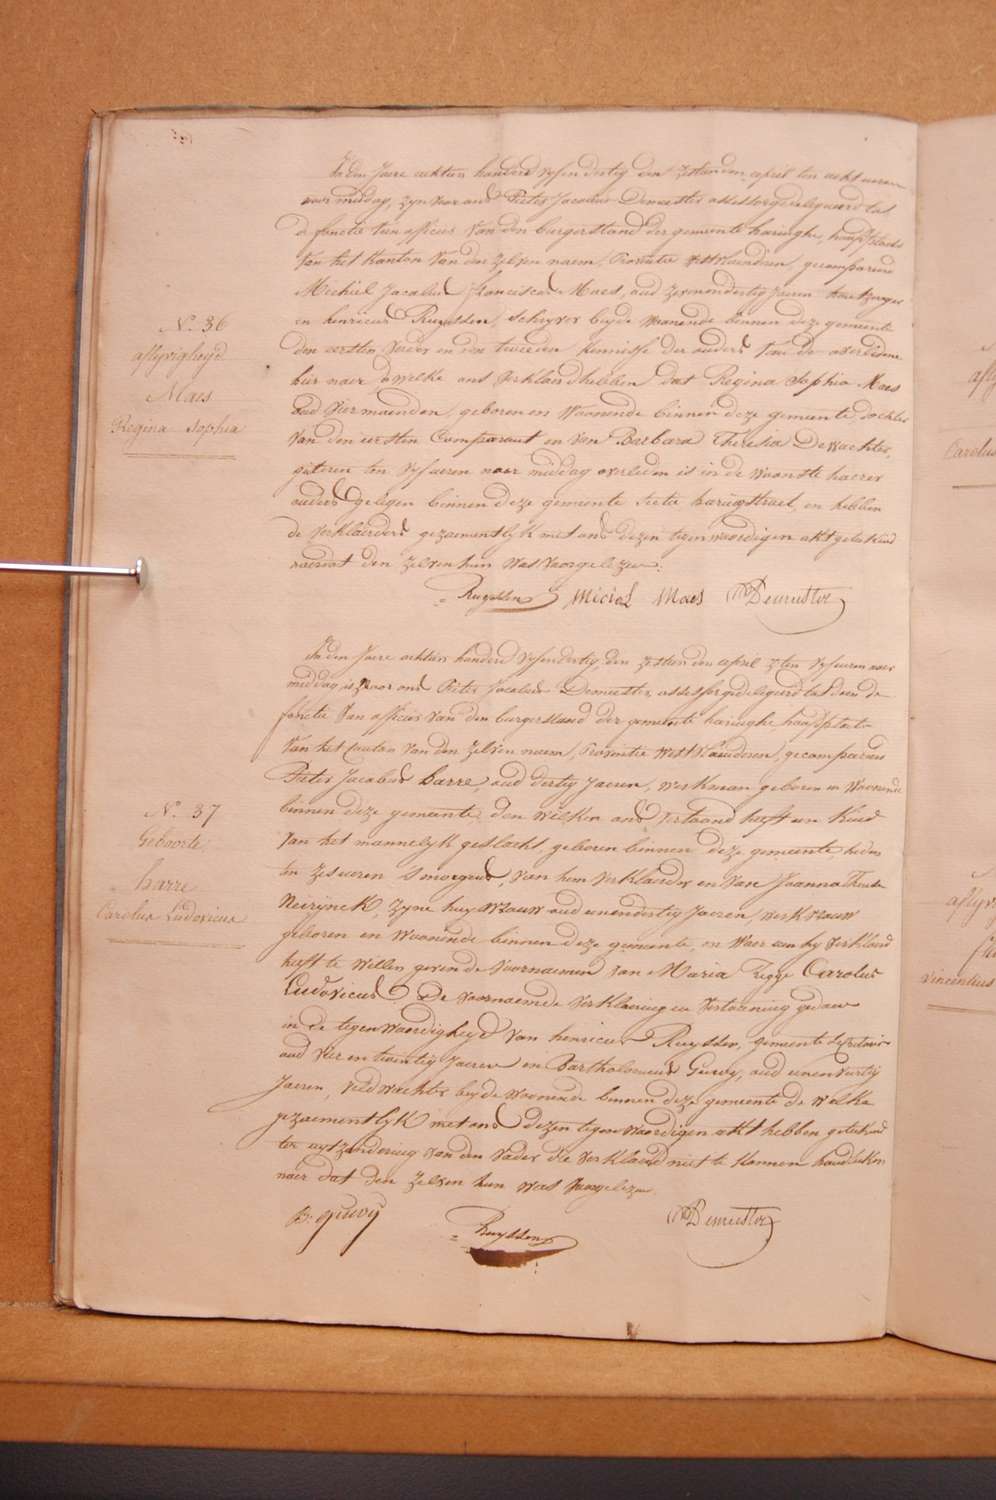 N.º 36
aflyvigheyd
Maes
Regina Sophia
In den Jaere achtien honderd vyfendertig den zestienden april ten acht uren
voor middag, zyn voor ons Pieter Jacobus Demeester assessor gedelegueerd tot
de fonctie van officier van den burgerstand der gemeente haringhe, hoofdplaets
van het kanton van den zelven naem, Provintie westvlaenderen, gecompareerd
Michiel Jacobus Franciscus Maes, oud zevenendertig Jaeren
en henricus Ruyssen, schryver beyde woonende binnen deze gemeente
den eersten vader en den tweeden kennisse der ouders van de overledene
hier naer, dewelke ons verklaerd hebben dat Regina Sophia Maes
oud vier maenden, geboren en woonende binnen deze gemeente, dochter
van den eersten Comparant en van Barbara Theresia Dewachter,
gisteren ten vyf uren naer middag overleden is in de woonste haerer
ouders gelegen binnen deze gemeente sectie haringstraet, en hebben
de verklaerders gezaementlyk met ons dezen tegenwoordigen akt geteekend
naerdat den zelven hun was voorgelezen:
Ruyssen Michiel Maes Demeester
N.º 37
Geboorte
barre
Carolus Ludovicus
In den Jaere achtien honderd vyfendertig den zestienden april ten vyf uren naer
middag is voor ons Pieter Jacobus Demeester, assessor gedelegueerd tot de
fonctie van officier van den burgerstand der gemeente haringhe, hoofdplaets
van het Canton van den zelven naem, Provintie westvlaenderen, gecompareerd
Pieter Jacobus barre, oud dertig Jaeren, werkman geboren en woonende
binnen deze gemeente, den welken ons vertoond heeft een kind
van het mannelyk geslacht, geboren binnen deze gemeente, heden
ten zes uren s'morgens, van hem verklaerder en van Joanna Theresia
Neirynck, zyne huysvrouw oud eenendertig Jaeren, werkvrouw
geboren en woonende binnen deze gemeente, en waer aen hy verklaerd
heeft te willen geven de voornaemen van Carolus
Ludovicus. De voornoemde verklaering en vertooning gedaen
in de tegenwoordigheyd van henricus Ruyssen, gemeente secretaris
oud vier en twintig Jaeren en Bartholomeus Guwy, oud eenenveertig
Jaeren, veldwachter beyde woonende binnen deze gemeente de welke
gezaementlyk met ons dezen tegenwoordigen akt hebben geteekend
ter uytzondering van den vader die verklaerd niet te konnen
naer dat den zelven hun was voorgelezen.
B: guwy Ruyssen Demeester